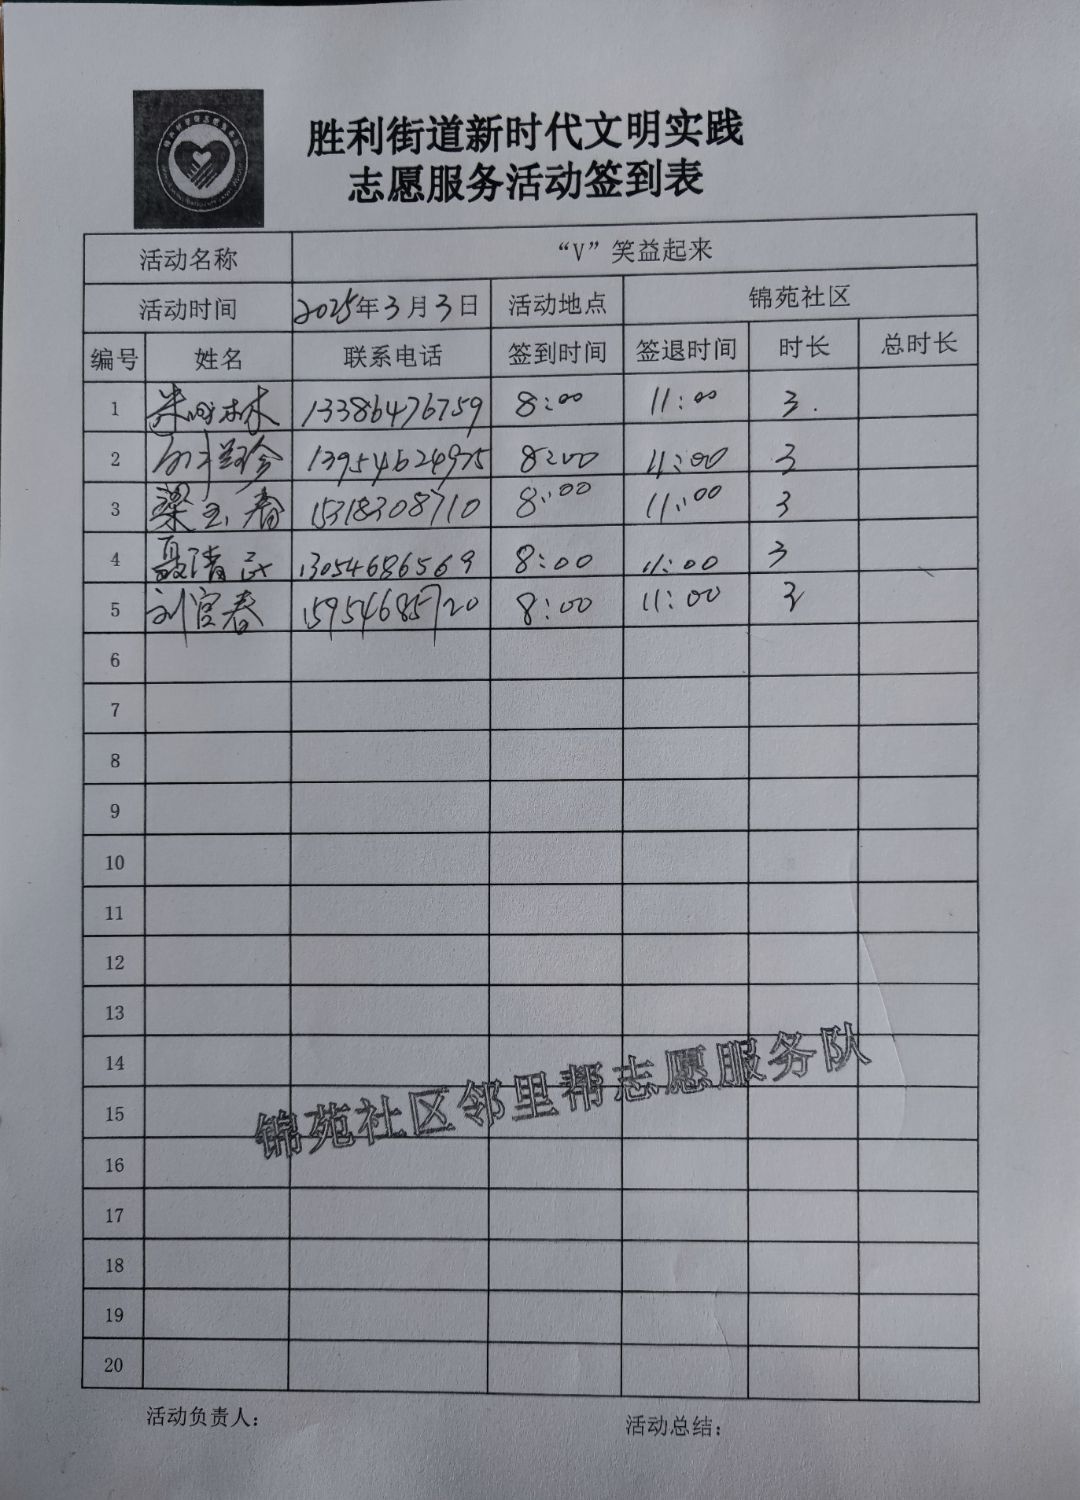 胜利街道新时代文明实践
志愿服务活动签到表
活动名称 “V”笑益起来
活动时间 2025年3月3日 活动地点 锦苑社区
编号 姓名 联系电话 签到时间 签退时间 时长 总时长
1 林 13386476759 8:00 11:00 3.
2 13954624975 8:00 11:00 3
3 梁玉春 15318308710 8:00 11:00 3
4 聂清 13054686569 8:00 11:00 3
5 刘宫春 15954685720 8:00 11:00 3
6
7
8
9
10
11
12
13
14
15
16
17
18
19
20
锦苑社区邻里帮志愿服务队
活动负责人: 活动总结: